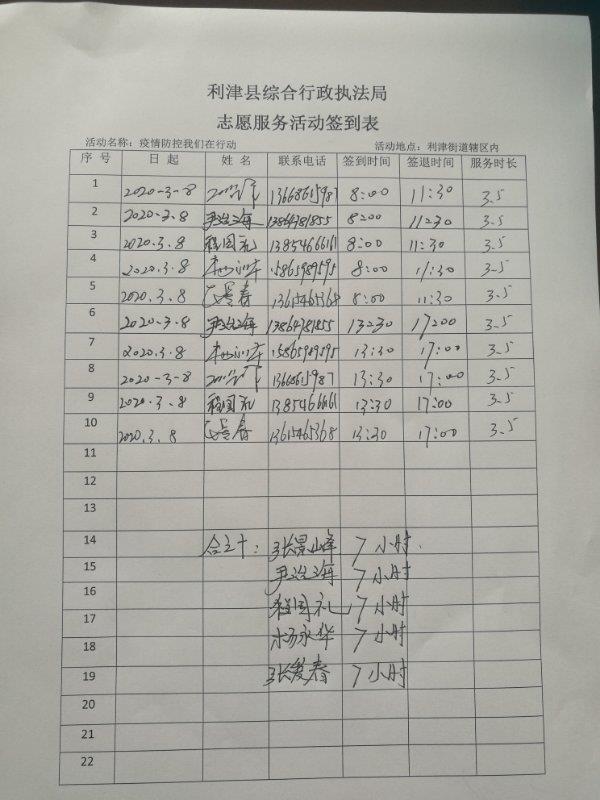 利津县综合行政执法局
志愿服务活动签到表
活动名称：疫情防控我们在行动 活动地点：利津街道辖区内
序号 日起 姓名 联系电话 签到时间 签退时间 服务时长
1 2020-3-8 8:00 11:30 3.5
2 2020-3.8 尹治海 13864781855 8:00 11:30 3.5
3 2020.3.8 程国礼 8:00 11:30 3.5
4 2020.3.8 15865989595 8:00 11:30 3.5
5 2020.3.8 13615465368 8:00 11:30 3.5
6 2020-3.8 尹治海 13864781855 13:30 17:00 3.5
7 2020.3.8 15865989595 13:30 17:00 3.5
8 2020-3-8 13:30 17:00 3.5
9 2020.3.8 程国礼 13:30 17:00 3.5
10 2020.3.8 13615465368 13:30 17:00 3.5
11
12
13
14 合计： 张景峰 7小时.
15 尹治海 7小时
16 程国礼 7小时
17
18 杨永华 7小时
19 张爱春 7小时
20
21
22